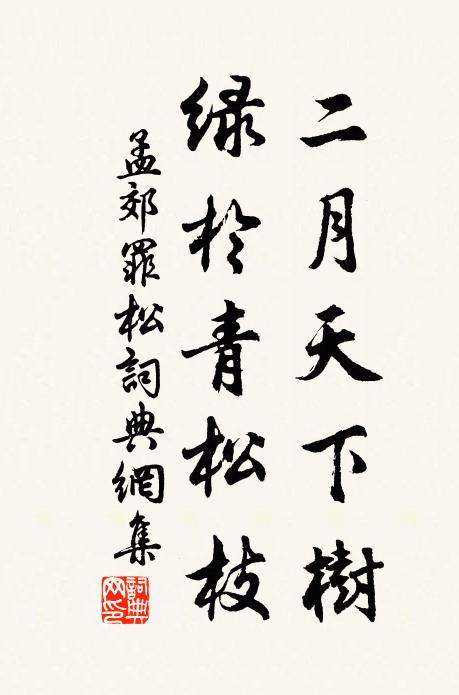 二月天下樹
綠於青松枝
孟郊罪松詞典網集
詞典網印